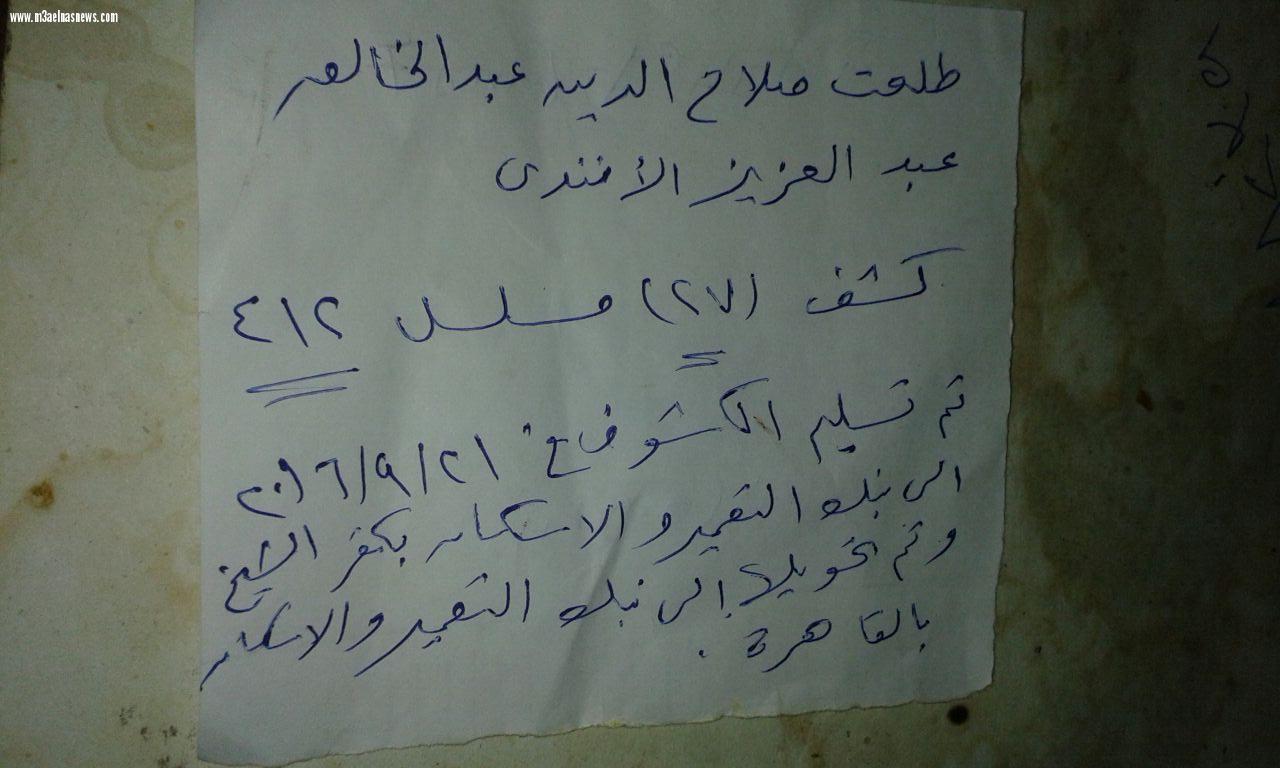 www.m3aelnasnews.com
طلعت صلاح الدين عبدالخالق
عبد العزيز الأفندى
كشف (٢٧) مسلسل ٤١٢
تم تسليم الكشوف في ٢٠١٦/٩/٢١
الى بنك التعمير والاسكان بكفر الشيخ
وتم تحويلها إلى بنك التعمير والاسكان
بالقاهرة.